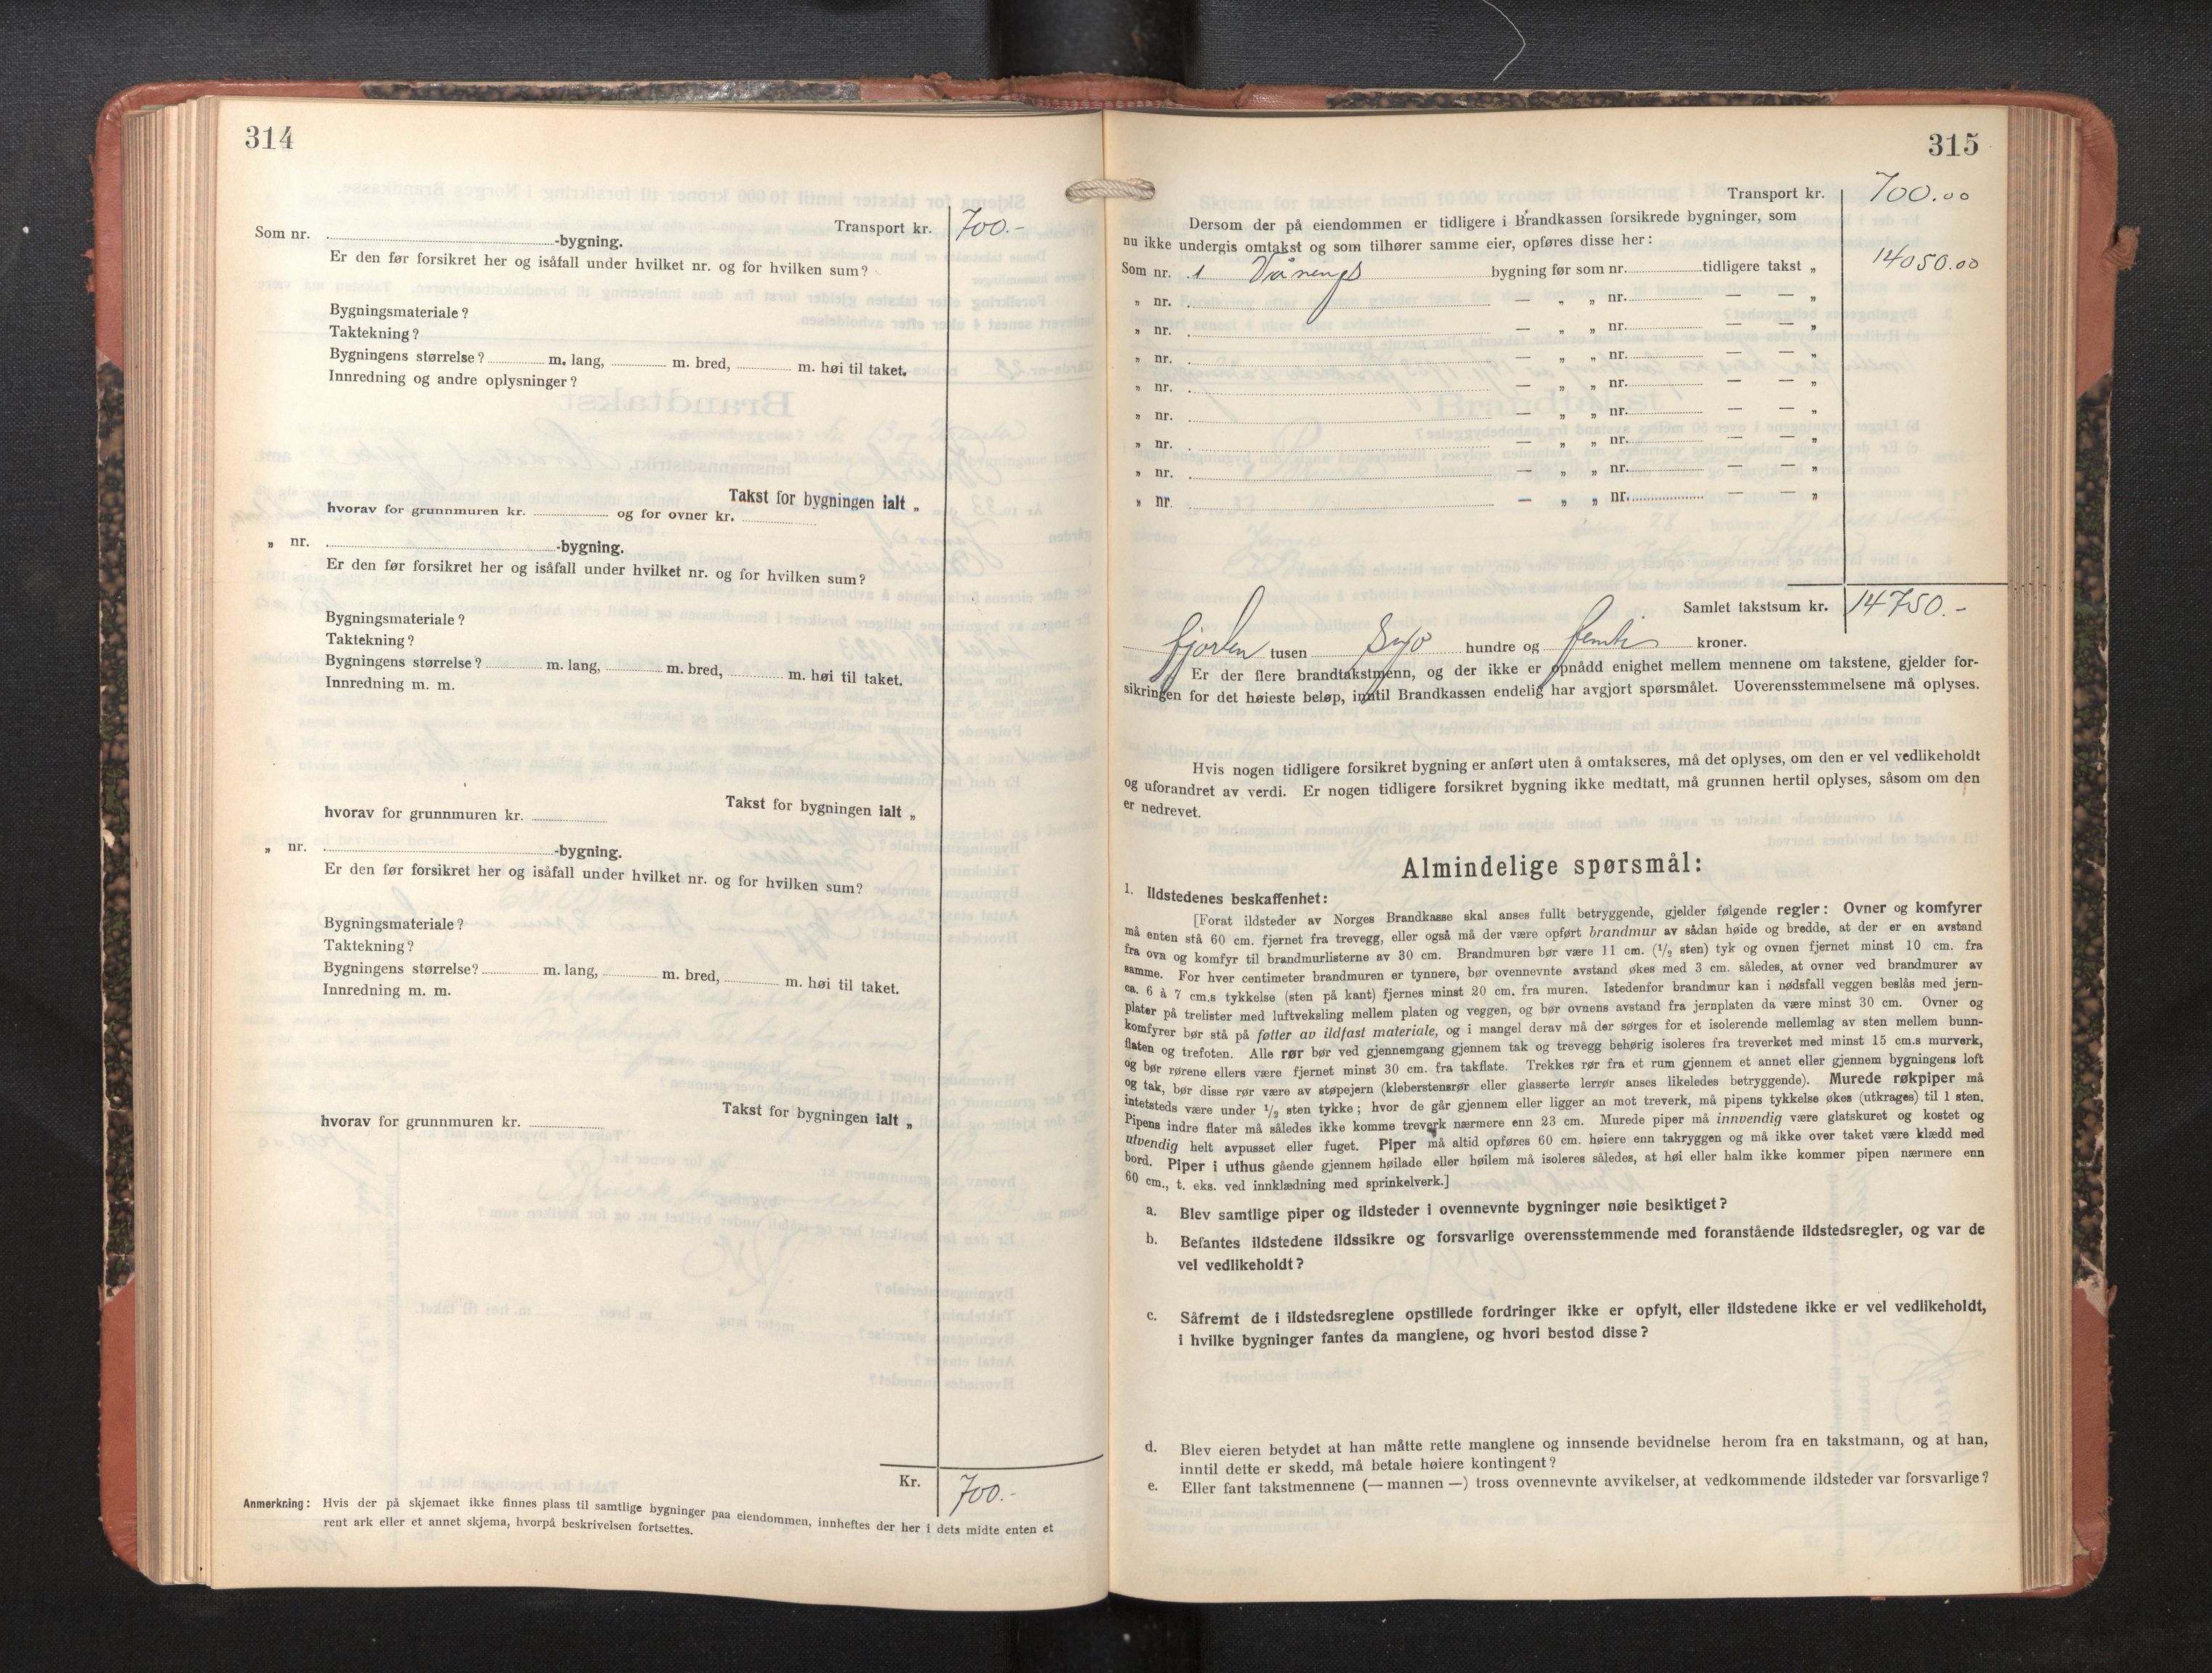 314
Transport kr. 700.-
Som nr. -bygning.
Er den før forsikret her og isåfall under hvilket nr. og for hvilken sum?
Bygningsmateriale?
Taktekning?
Bygningens størrelse? m. lang, m. bred, m. høi til taket.
Innredning og andre oplysninger?
Takst for bygningen ialt „
hvorav for grunnmuren kr. og for ovner kr.
„ nr. -bygning.
Er den før forsikret her og isåfall under hvilket nr. og for hvilken sum?
Bygningsmateriale?
Taktekning?
Bygningens størrelse? m. lang, m. bred, m. høi til taket.
Innredning m. m.
Takst for bygningen ialt „
hvorav for grunnmuren kr.
„ nr. -bygning.
Er den før forsikret her og isåfall under hvilket nr. og for hvilken sum?
Bygningsmateriale?
Taktekning?
Bygningens størrelse? m. lang, m. bred, m. høi til taket.
Innredning m. m.
Takst for bygningen ialt „
hvorav for grunnmuren kr.
Kr. 700.-
Anmerkning: Hvis der på skjemaet ikke finnes plass til samtlige bygninger paa eiendommen, innheftes der her i dets midte enten et
rent ark eller et annet skjema, hvorpå beskrivelsen fortsettes.
315
Transport kr. 700.00
Dersom der på eiendommen er tidligere i Brandkassen forsikrede bygninger, som
nu ikke undergis omtakst og som tilhører samme eier, opføres disse her:
Som nr. 1 Vånings bygning før som nr. tidligere takst „ 14050.00
„ nr. — „ „ nr. — — „
„ nr. — „ „ nr. — — „
„ nr. — „ „ nr. — — „
„ nr. — „ „ nr. — — „
„ nr. — „ „ nr. — — „
„ nr. — „ „ nr. — — „
„ nr. — „ „ nr. — — „
„ nr. — „ „ nr. — — „
Samlet takstsum kr. 14750.-
fjorten tusen syv hundre og femti kroner.
Er der flere brandtakstmenn, og der ikke er opnådd enighet mellem mennene om takstene, gjelder for-
sikringen for det høieste beløp, inntil Brandkassen endelig har avgjort spørsmålet. Uoverensstemmelsene må oplyses.
Hvis nogen tidligere forsikret bygning er anført uten å omtakseres, må det oplyses, om den er vel vedlikeholdt
og uforandret av verdi. Er nogen tidligere forsikret bygning ikke medtatt, må grunnen hertil oplyses, såsom om den
er nedrevet.
Almindelige spørsmål:
1. Ildstedenes beskaffenhet:
[Forat ildsteder av Norges Brandkasse skal anses fullt betryggende, gjelder følgende regler: Ovner og komfyrer
må enten stå 60 cm. fjernet fra trevegg, eller også må der være opført brandmur av sådan høide og bredde, at der er en avstand
fra ovn og komfyr til brandmurlisterne av 30 cm. Brandmuren bør være 11 cm. (1/2 sten) tyk og ovnen fjernet minst 10 cm. fra
samme. For hver centimeter brandmuren er tynnere, bør ovennevnte avstand økes med 3 cm. således, at ovner ved brandmurer av
ca. 6 à 7 cm.s tykkelse (sten på kant) fjernes minst 20 cm. fra muren. Istedenfor brandmur kan i nødsfall veggen beslås med jern-
plater på trelister med luftveksling mellem platen og veggen, og bør ovnens avstand fra jernplaten da være minst 30 cm. Ovner og
komfyrer bør stå på føtter av ildfast materiale, og i mangel derav må der sørges for et isolerende mellemlag av sten mellem bunn-
flaten og trefoten. Alle rør bør ved gjennemgang gjennem tak og trevegg behørig isoleres fra treverket med minst 15 cm.s murverk,
og bør rørene ellers være fjernet minst 30 cm. fra takflate. Trekkes rør fra et rum gjennem et annet eller gjennem bygningens loft
og tak, bør disse rør være av støpejern (kleberstensrør eller glasserte lerrør anses likeledes betryggende). Murede røkpiper må
intetsteds være under 1/2 sten tykke; hvor de går gjennem eller ligger an mot treverk, må pipens tykkelse økes (utkrages) til 1 sten.
Pipens indre flater må således ikke komme treverk nærmere enn 23 cm. Murede piper må innvendig være glatskuret og kostet og
utvendig helt avpusset eller fuget. Piper må altid opføres 60 cm. høiere enn takryggen og må ikke over taket være klædd med
bord. Piper i uthus gående gjennem høilade eller høilem må isoleres således, at høi eller halm ikke kommer pipen nærmere enn
60 cm., t. eks. ved innklædning med sprinkelverk.]
a. Blev samtlige piper og ildsteder i ovennevnte bygninger nøie besiktiget?
b. Befantes ildstedene ildssikre og forsvarlige overensstemmende med foranstående ildstedsregler, og var de
vel vedlikeholdt?
c. Såfremt de i ildstedsreglene opstillede fordringer ikke er opfylt, eller ildstedene ikke er vel vedlikeholdt,
i hvilke bygninger fantes da manglene, og hvori bestod disse?
d. Blev eieren betydet at han måtte rette manglene og innsende bevidnelse herom fra en takstmann, og at han,
inntil dette er skedd, må betale høiere kontingent?
e. Eller fant takstmennene (— mannen —) tross ovennevnte avvikelser, at vedkommende ildsteder var forsvarlige?